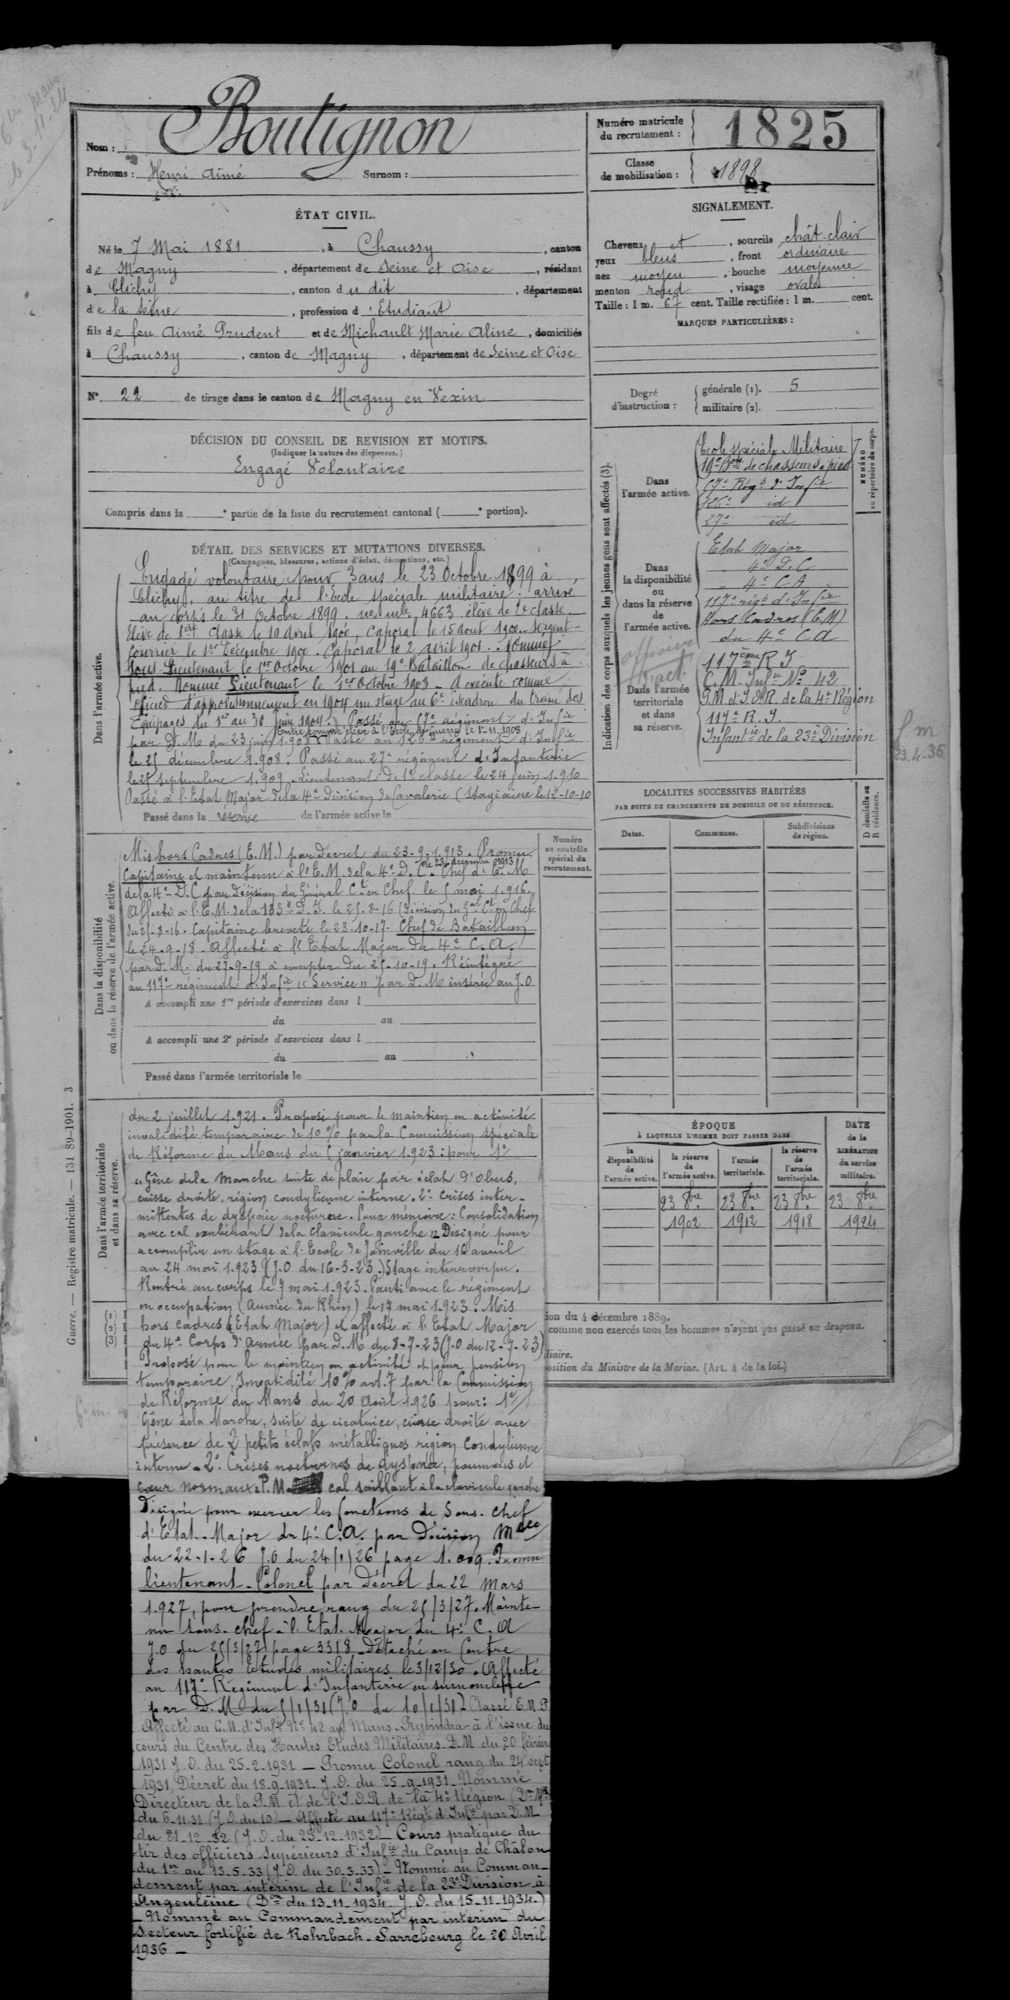 Nom : Boutignon
Prénoms : Henri Aimé Surnom :
Numéro matricule du recrutement : 1825
Classe de mobilisation : 1898
ÉTAT CIVIL.
Né le 7 Mai 1881, à Chaussy, canton
de Magny, département de Seine et Oise, résidant
à Clichy, canton du dit, département
de la Seine, profession d'Etudiant
fils de feu Aimé Prudent et de Michault Marie Aline, domiciliés
à Chaussy, canton de Magny, département de Seine et Oise
N° 22 de tirage dans le canton de Magny en Vexin
SIGNALEMENT.
Cheveux et, sourcils chât. clair
yeux bleus, front ordinaire
nez moyen, bouche moyenne
menton rond, visage ovale
Taille : 1 m. 67 cent. Taille rectifiée : 1 m. cent.
MARQUES PARTICULIÈRES :
Degré d'instruction : générale (1). 5
militaire (2).
DÉCISION DU CONSEIL DE REVISION ET MOTIFS.
(Indiquer la nature des dispenses.)
Engagé Volontaire
Compris dans la e partie de la liste du recrutement cantonal ( e portion).
DÉTAIL DES SERVICES ET MUTATIONS DIVERSES.
(Campagnes, blessures, actions d'éclat, décorations, etc.)
Dans l'armée active.
Engagé volontaire pour 3 ans le 23 Octobre 1899 à
Clichy, au titre de l'école spéciale militaire. Arrivé
au corps le 31 Octobre 1899. 4663 élève de 2e classe
Elève de 1ère classe le 10 Avril 1900, Caporal le 15 Aout 1900. Sergent-
fourrier le 1er Décembre 1900. Caporal le 2 Avril 1901. Nommé
Sous-Lieutenant le 1er Octobre 1901 au 19e Bataillon de chasseurs à
pied. Nommé Lieutenant le 1er Octobre 1903 - A exécuté comme
officier d'approvisionnement en 1904 un stage au 6e Escadron du train des
Equipages du 1er au 30 Juin 1904. Passé au 67e régiment d'Infie
par D.M. du 23 juin 1.908. Passé au 126e régiment d'Infie
le 25 décembre 1.908. Passé au 27e régiment d'Infanterie
le 25 septembre 1.909. Lieutenant de 1e classe le 24 juin 1.910
Passé à l'Etat Major de la 4e Division de Cavalerie (Stagiaire le 12-10-10
Passé dans la réserve de l'armée active le
Dans la disponibilité ou dans la réserve de l'armée active.
Mis hors Cadres (E.M.) par décret du 23-9-1.913. Promu
Capitaine et maintenu à l'E.M. de la 4e D.C. le 23 décembre 1913 Chef d'E.M
de la 4e D.C. par décision du Général Ct en Chef le 5 mai 1.916.
Affecté à l'E.M. de la 133e D.I. le 25-8-16 (décision du Gal Ct en Chef
du 25-8-16. Capitaine breveté le 23-10-17. Chef de Bataillon
le 24-9-18. Affecté à l'Etat Major du 4e C.A.
par D.M. du 27-9-19 à compter du 25-10-19. Réintégré
au 117e régiment d'Infie "Service" par D.M insérée au J.O
A accompli une 1re période d'exercices dans l
du au
A accompli une 2e période d'exercices dans l
du au
Passé dans l'armée territoriale le
Numéro au contrôle spécial du recrutement.
Dans l'armée territoriale et dans sa réserve.
du 2 juillet 1.921. Proposé pour le maintien en activité
invalidité temporaire de 10% par la Commission spéciale
de Réforme du Mans du 5 janvier 1.923 : pour 1°
"Gêne de la Marche suite de plaie par éclat d'obus,
cuisse droite, région condylienne interne. 2° Crises inter-
mittentes de dyspnée nocturne. Pour mémoire : Consolidation
avec cal exubérant de la clavicule gauche. Désigné pour
accomplir un stage à l'Ecole de Joinville du 16 avril
au 24 mai 1.923 (J.O du 16-3-23) Stage interrompu.
Rentré au corps le 7 mai 1.923. Parti avec le régiment
en occupation (Armée du Rhin) le 17 mai 1.923. Mis
hors cadres (Etat Major) et affecté à l'Etat Major
du 4e Corps d'Armée par D.M du 8-7-23 (J.O du 12-7-23)
Proposé pour le maintien en activité et pour pension
temporaire, Invalidité 10% art.7 par la Commission
de Réforme du Mans du 20 Août 1.926 pour : 1°
Gêne de la Marche, suite de cicatrice, cuisse droite avec
présence de 2 petits éclats métalliques région condylienne
interne. 2° Crises nocturnes de dyspnée, poumons et
cœur normaux. P.M. cal saillant à la clavicule gauche
Désigné pour exercer les fonctions de Sous-chef
d'Etat-Major du 4e C.A. par décision Mlle
du 22-1-26 J.O du 24/1/26 page 1.009. Promu
lieutenant-Colonel par décret du 22 mars
1.927, pour prendre rang du 25/3/27. Mainte-
nu sous-chef à l'Etat-Major du 4e C.A
J.O du 25/3/27 page 3318. Détaché au Centre
des hautes Etudes militaires le 3/12/30. Affecté
au 117e Régiment d'Infanterie en surnombre
par D.M du 5/1/31 (J.O du 10/1/31). Classé E.M.P.
Affecté au C.M. d'Infie N° 42 au Mans. Rejoindra à l'issue du
cours du Centre des Hautes Etudes Militaires. D.M. du 20 février
1931 J.O. du 25-2-1931 - Promu Colonel rang du 24 sept
1931, Décret du 18.9.1931. J.O. du 25.9.1931. Nommé
Directeur de la P.M. et de l'I.O.R. de la 4e Région
du 6-11-31 (J.O. du 10) - Affecté au 117e Régt d'Infie par D.M
du 21-12-32 (J.O. du 25-12-1932) - Cours pratique du
tir des officiers supérieurs d'Infie du Camp de Châlon
du 1er au 13.5.33 (J.O. du 30.3.33) - Nommé au Comman-
dement par intérim de l'Infie de la 23e Division à
Angoulême (Don du 13-11-1934 J.O. du 15-11-1934.)
- Nommé au Commandement par intérim du
Secteur fortifié de Rohrbach-Sarrebourg le 20 Avril
1936 -
Indication des corps auxquels les jeunes gens sont affectés (3).
NUMÉRO au répertoire du corps.
Dans l'armée active.
Ecole spéciale Militaire
19e Bon de chasseurs à pied
67e Régt d'Infie
126e id
27e id
Dans la disponibilité ou dans la réserve de l'armée active.
Etat Major
4e D.C
4e C A
117e régt d'Infie
Hors Cadres (E.M)
du 4e C A
Dans l'armée territoriale et dans sa réserve.
officier
117ème R I
C.M. Infie N° 42
P.M et I.O.R. de la 4e Région
117e R.I.
Infanterie de la 23e Division
23.4.36
LOCALITÉS SUCCESSIVES HABITÉES
PAR SUITE DE CHANGEMENTS DE DOMICILE OU DE RÉSIDENCE.
Dates. Communes. Subdivisions de région. D domicile ou R résidence.
ÉPOQUE
À LAQUELLE L'HOMME DOIT PASSER DANS
DATE de la LIBÉRATION du service militaire.
la disponibilité de l'armée active. la réserve de l'armée active. l'armée territoriale. la réserve de l'armée territoriale.
23 8bre 23 8bre 23 8bre 23 8bre
1902 1912 1918 1924
ion du 4 décembre 1889.
comme non exercés tous les hommes n'ayant pas passé au drapeau.
position du Ministre de la Marine. (Art. 4 de la loi.)
Guerre. — Registre matricule. — 131 89-1901. 3